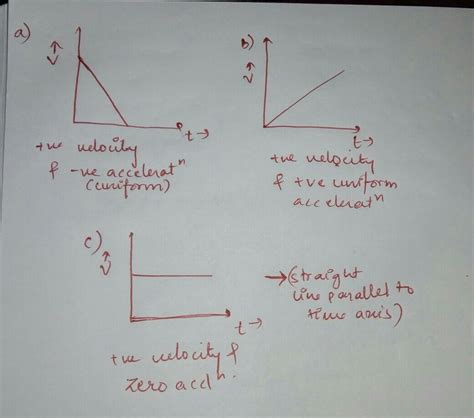 a)
v →
t →
+ve velocity
& -ve acceleratⁿ
(uniform)
b)
v →
t →
+ve velocity
& +ve uniform
acceleratⁿ
c)
v →
t →
+ve velocity &
zero accⁿ.
→ (straight
line parallel to
time axis)